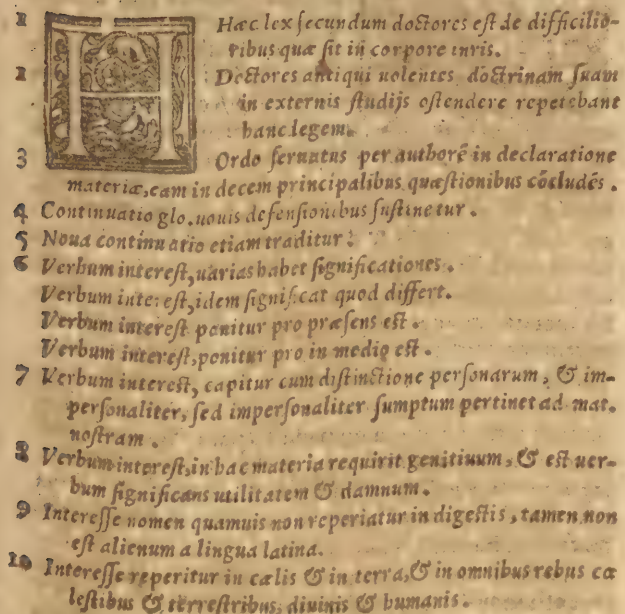 1 Hæc lex secundum doctores est de difficilio-
ribus quæ sit in corpore iuris.
2 Doctores antiqui uolentes doctrinam suam
in externis studijs ostendere repetebant
hanc legem.
3 Ordo seruatus per authorē in declaratione
materiæ, eam in decem principalibus quæstionibus cōcludēs.
4 Continuatio glo. nouis defensionibus sustinetur.
5 Noua continuatio etiam traditur.
6 Verbum interest, uarias habet significationes.
Verbum interest, idem significat quod differt.
Verbum interest ponitur pro præsens est.
Verbum interest, ponitur pro in medio est.
7 Verbum interest, capitur cum distinctione personarum, & im-
personaliter, sed impersonaliter sumptum pertinet ad mat.
nostram.
8 Verbum interest, in hac materia requirit genitiuum, & est uer-
bum significans utilitatem & damnum.
9 Interesse nomen quamuis non reperiatur in digestis, tamen non
est alienum a lingua latina.
10 Interesse reperitur in cælis & in terra, & in omnibus rebus cœ
lestibus & terrestribus, diuinis & humanis.